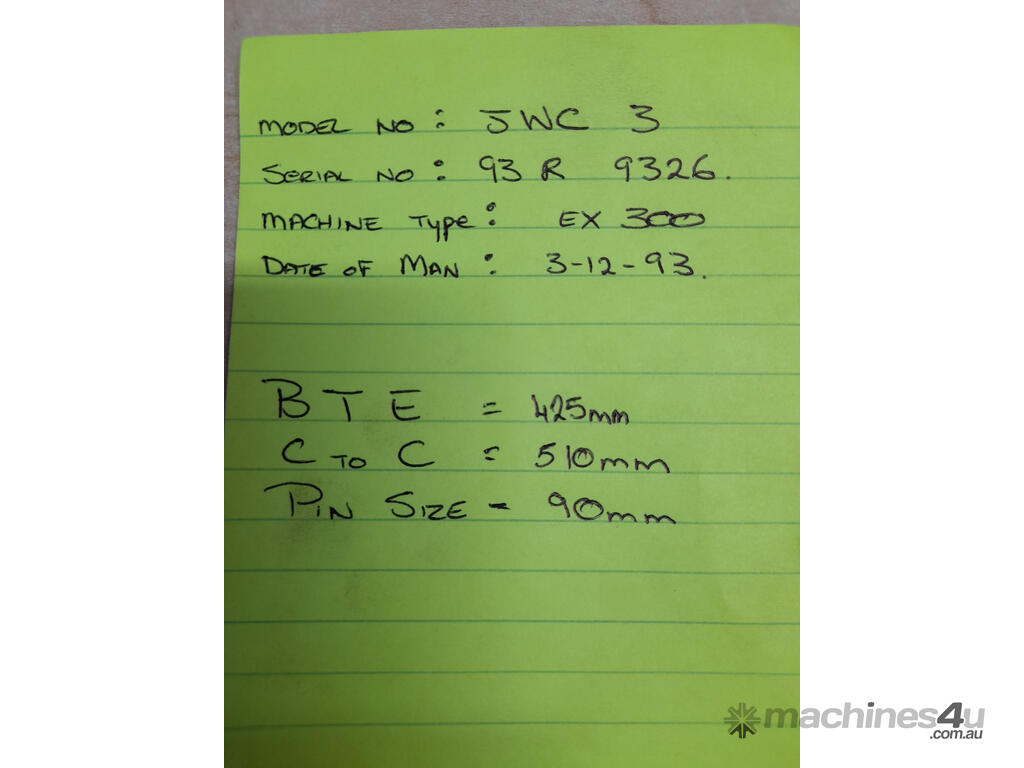 MODEL NO : JWC 3
SERIAL NO : 93 R 9326.
MACHINE TYPE : EX 300
DATE OF MAN : 3-12-93.
B T E = 425mm
C TO C = 510mm
PIN SIZE - 90mm
machines4u
.com.au